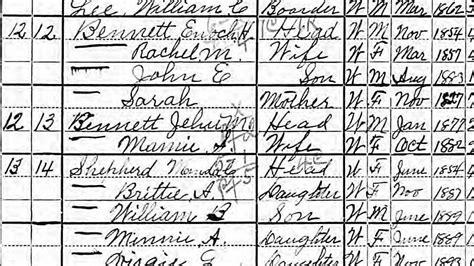 Lee, William C Boarder W M Mar 1862
12 12 Bennett Enoch H Head W M Nov 1854
Rachel M. Wife W F Mar 1857
John E Son W M Aug 1883
Sarah Mother W F Nov 1827
12 13 Bennett Head W M Jan 1877
Mamie Wife W F Oct 1882
13 14 Shepherd Head W F June 1854
Brittie A. Daughter W F Nov 1887
William B Son W M June 1889
Minnie A. Daughter W F June 1889
Daughter W F Nov 1893